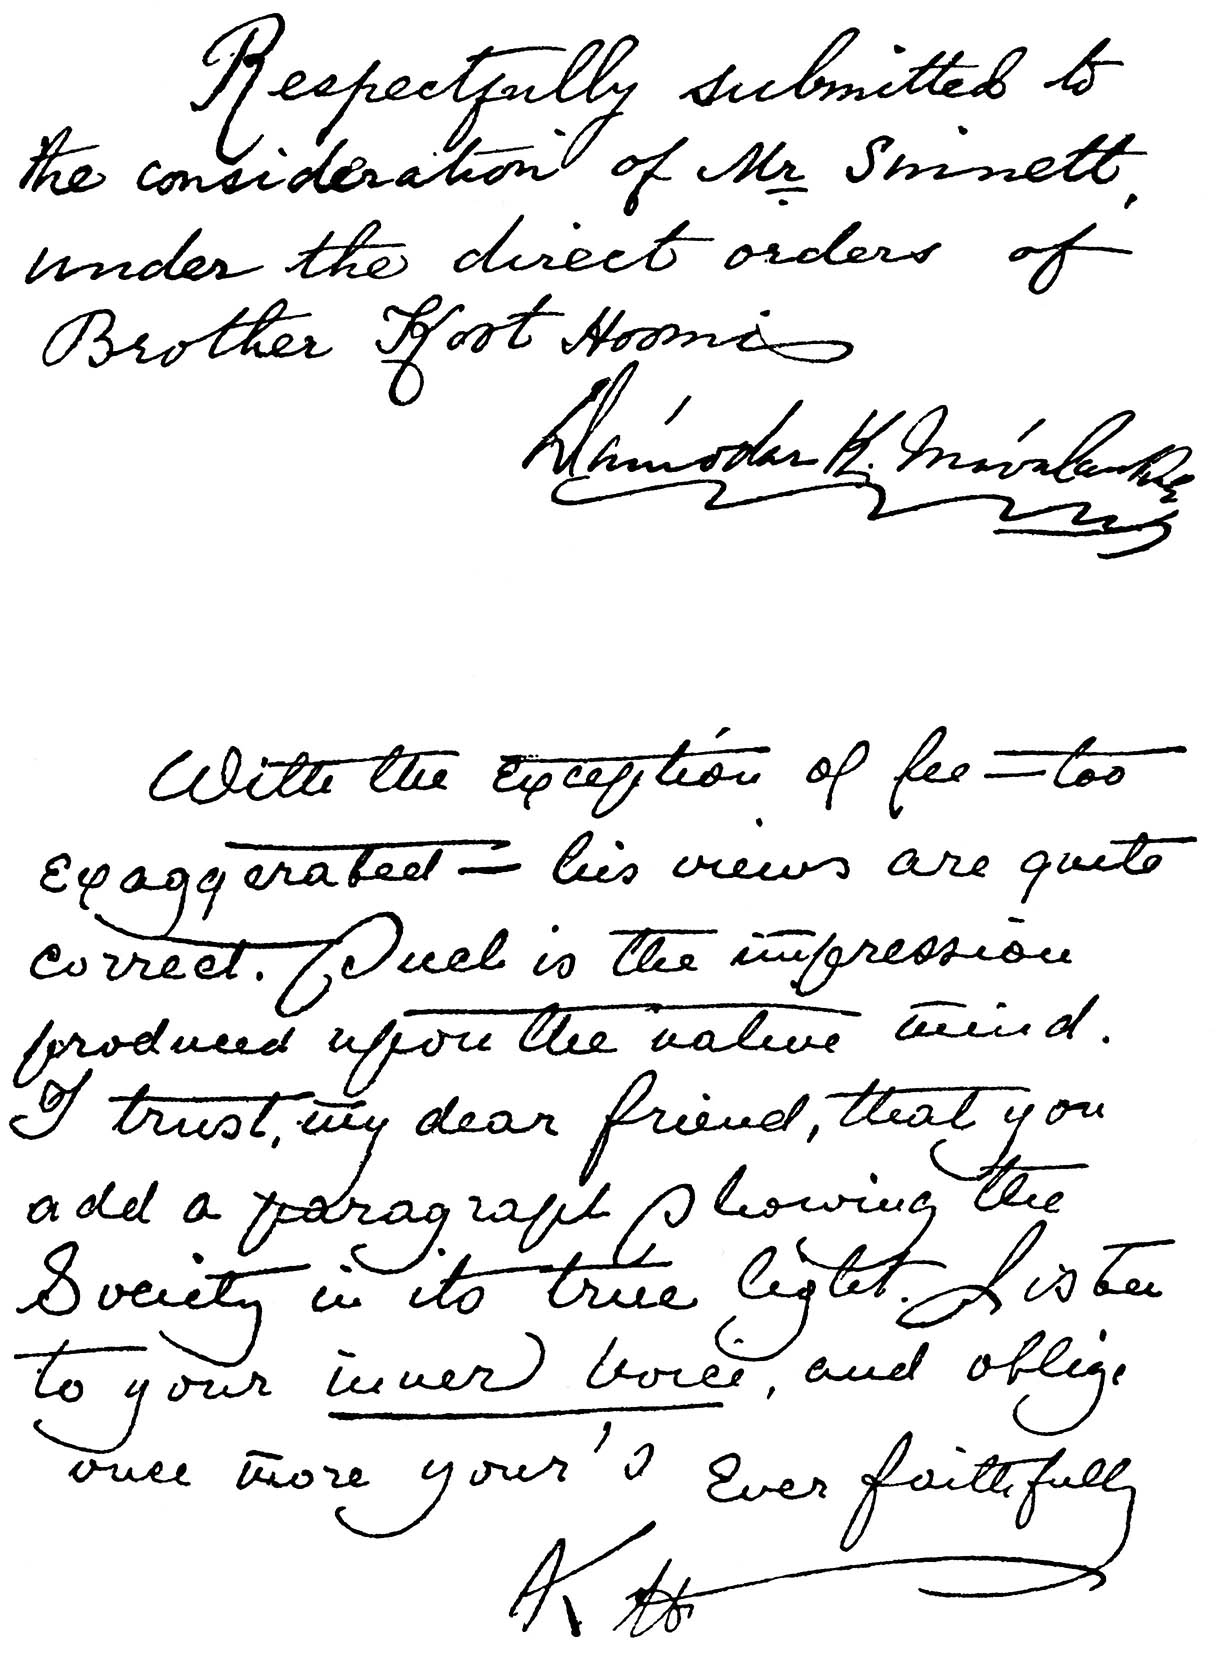 Respectfully submitted to
the consideration of Mr. Sinnett,
under the direct orders of
Brother Koot Hoomi
Dámodar K. Mávalankar
With the exception of fee — too
exaggerated — his views are quite
correct. Such is the impression
produced upon the native mind.
I trust, my dear friend, that you
add a paragraph showing the
Society in its true light. Listen
to your inner voice, and oblige
once more your's Ever faithfully
K H